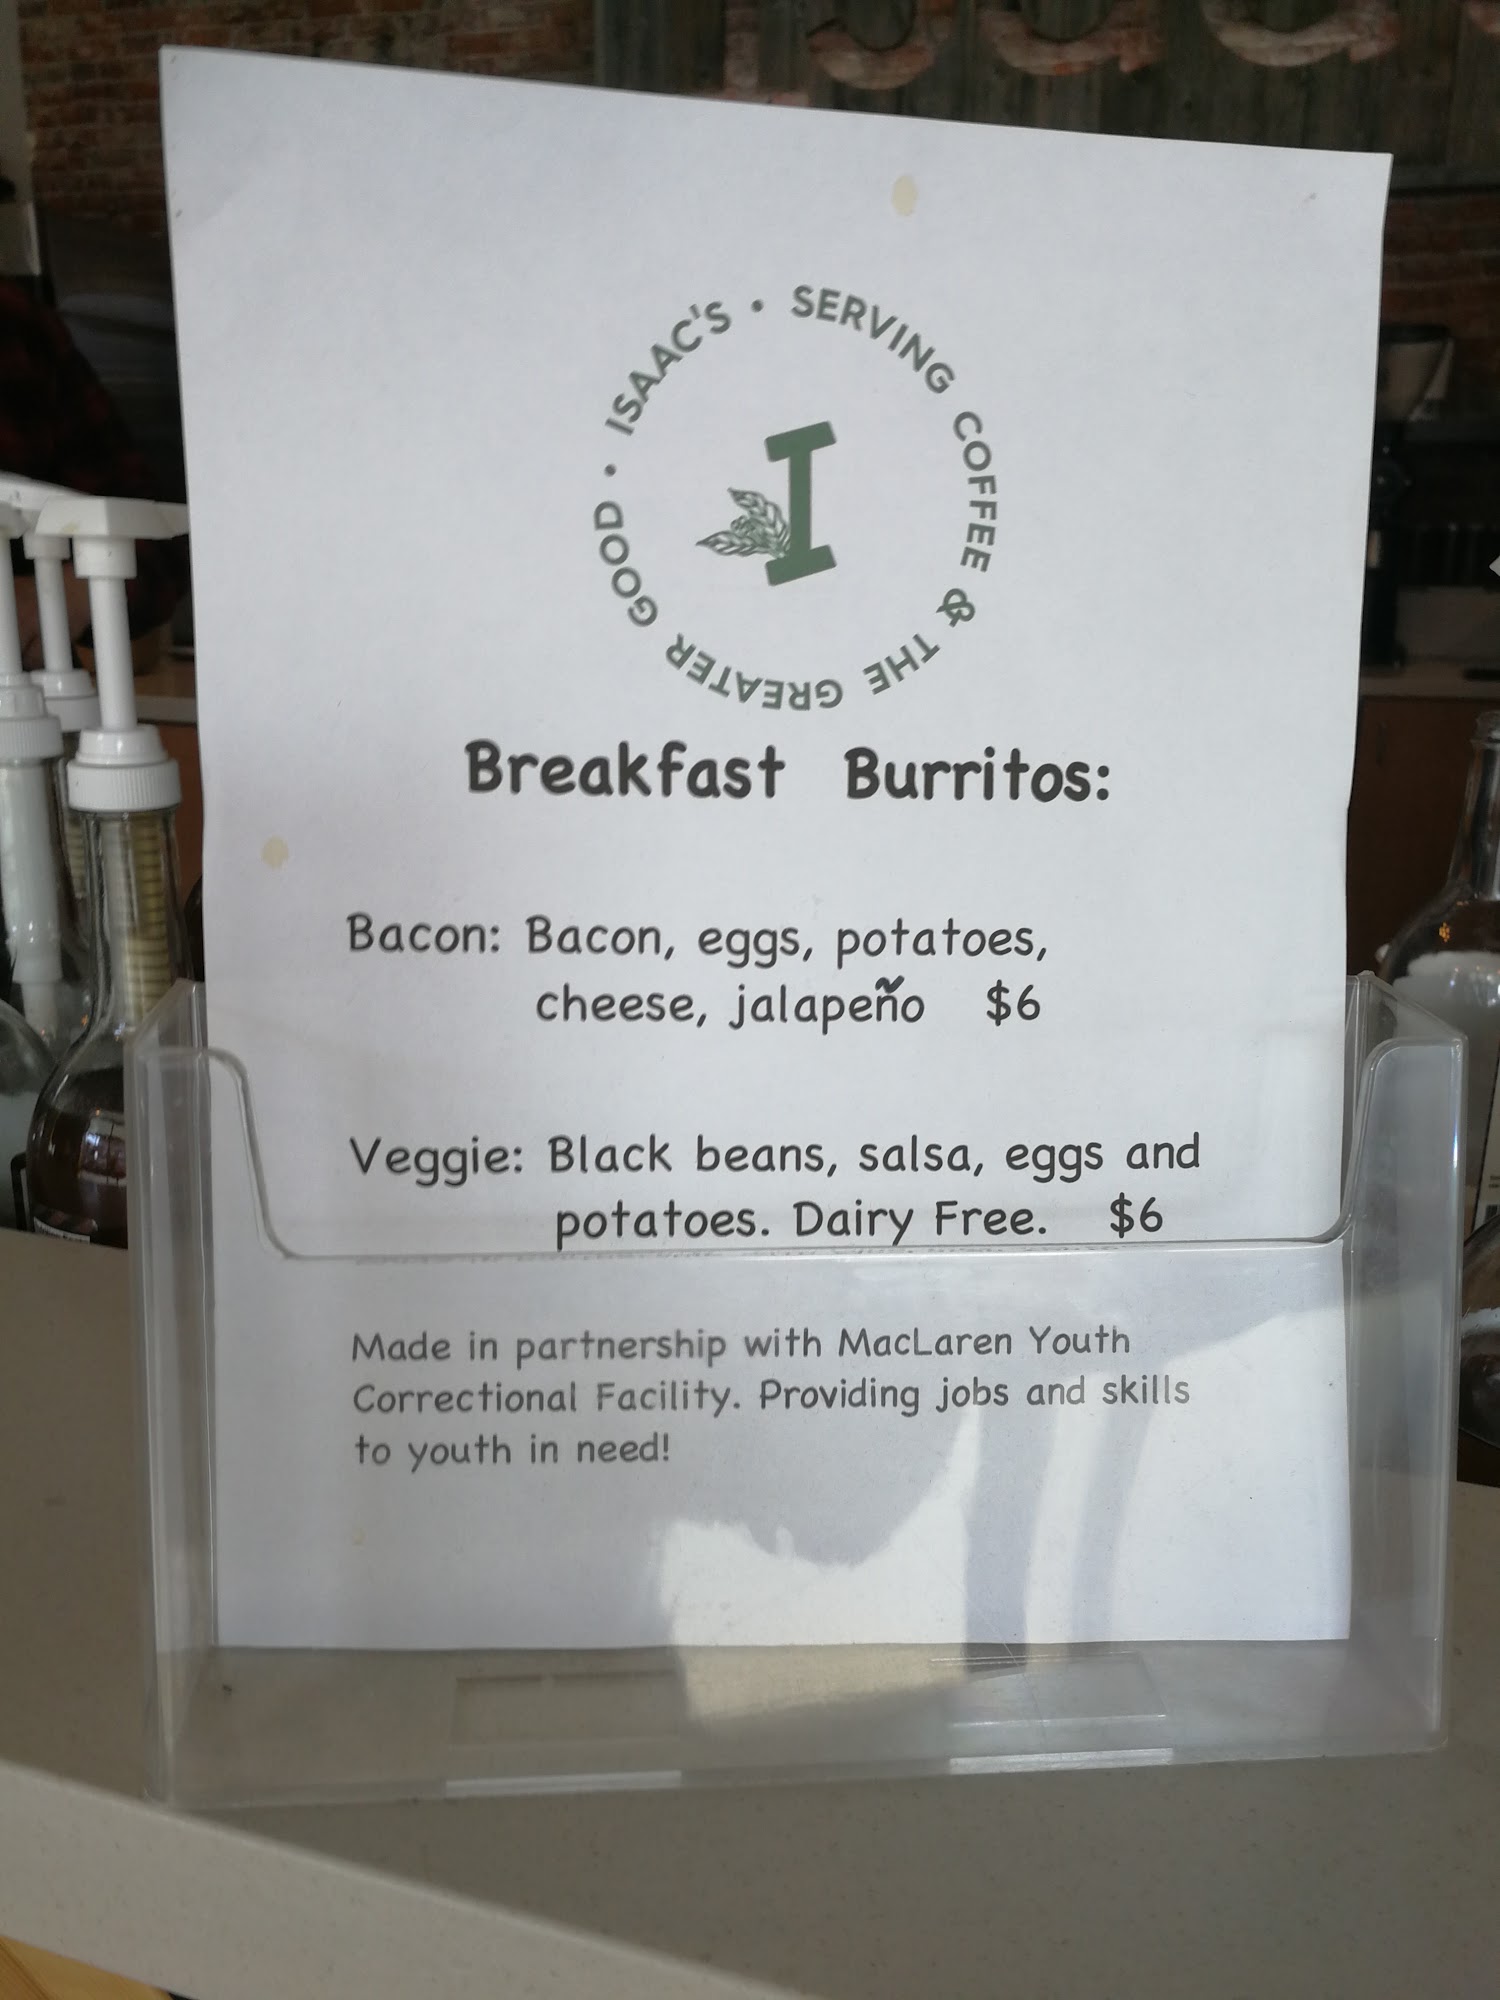 ISAAC'S • SERVING COFFEE & THE GREATER GOOD •
I
Breakfast Burritos:
Bacon: Bacon, eggs, potatoes,
cheese, jalapeño $6
Veggie: Black beans, salsa, eggs and
potatoes. Dairy Free. $6
Made in partnership with MacLaren Youth
Correctional Facility. Providing jobs and skills
to youth in need!